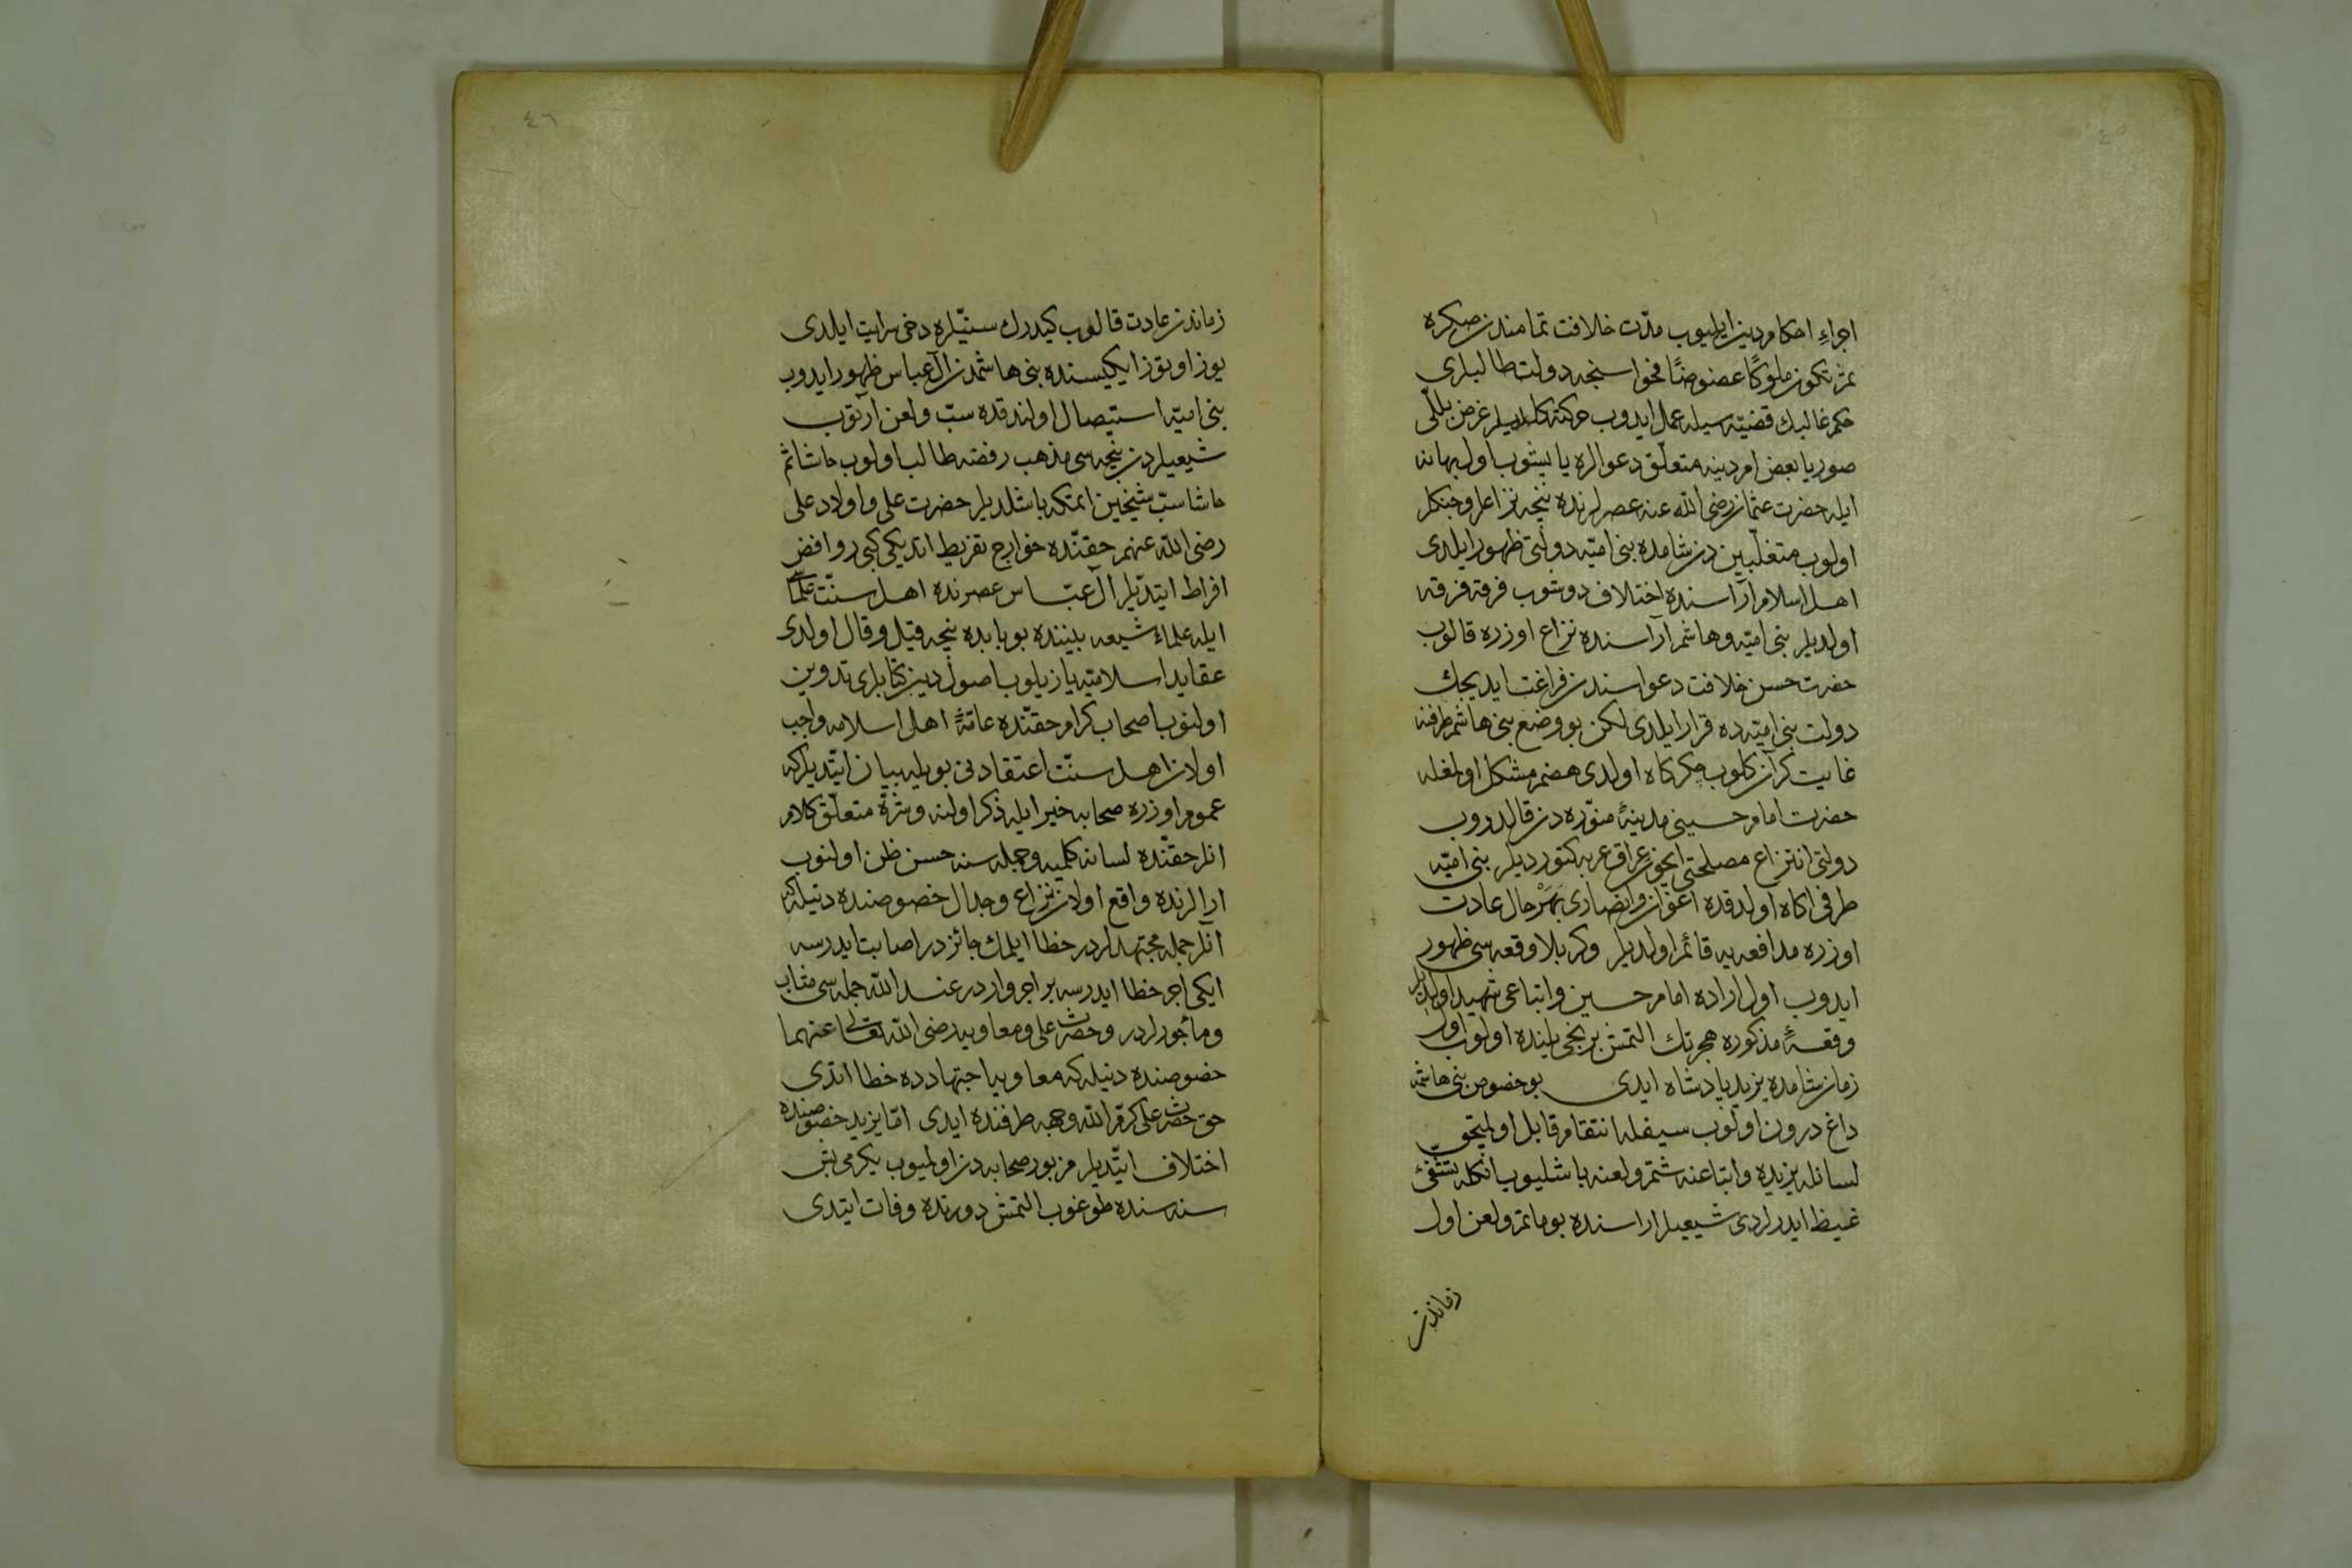 ٤٥
اجراءِ احكام دين ايليوب مدّت خلافت تمامندن صكره
ثم تكون ملوكًا عضوضًا فحواسنجه دولت طالبلرى
حكم غالبك قضيّه سيله عمل ايدوب حركته كلديلر غرض بللّى
صوريا بعض امر دينه متعلّق دعوالره ياپشوب اول بهانه
ايله حضرت عثمان رضى اللّه عنه عصرلرنده نيجه نزاعلر و جنكلر
اولوب متغلّبين دن شامده بنى اميّه دولتى ظهور ايلدى
اهل اسلام آراسنده اختلاف دوشوب فرقه فرقه
اولديلر بنى اميّه و هاشم آراسنده نزاع اوزره قالوب
حضرت حسن خلافت دعواسندن فراغت ايديجك
دولت بنى اميّه ده قرار ايلدى لكن بو وضع بنى هاشم طرفنه
غايت كران كلوب جكركاه اولدى هضم مشكل اولمغله
حضرت امام حسينى مدينۀ منوّره دن قالدروب
دولتى انتزاع مصلحتى ايچون عراق عربه كتورديلر بنى اميّه
طرفى اكاه اولدقده اعوان و انصارى بهر حال عادت
اوزره مدافعه يه قائم اولديلر و كربلا وقعه سى ظهور
ايدوب اول اراده امام حسين و اتباعى شهيد اولديلر
وقعۀ مذكوره هجرتك التمش برنجى يلنده اولوب اول
زمان شامده يزيد پادشاه ايدى بو خصوص بنى هاشمه
داغ درون اولوب سيفله انتقام قابل اولميجق
لسانله يزيده و اتباعنه شتم و لعنه باشليوب انكله تشفّئ
غيظ ايدرلردى شيعيلر اراسنده بو ماتم و لعن اول
زماندن
٤٦
زماندن عادت قالوب كيدرك سنّيلره دخى سرايت ايلدى
يوز اوتوز ايكيسنده بنى هاشمدن آل عباس ظهور ايدوب
بنى اميّه استيصال اولندقده سبّ و لعن آرتوب
شيعيلردن نيجه سى مذهب رفضه طالب اولوب حاشا ثم
حاشا سبّ شيخين ايتمكه باشلديلر حضرت على و اولاد على
رضى اللّه عنهم حقّنده خوارج تفريط ايتديكى كبى روافض
افراط ايتديلر آل عبّاس عصرنده اهل سنّت علماسى
ايله علماء شيعه بيننده بو بابده نيجه قيل و قال اولدى
عقايد اسلاميّه يازيلوب اصول دين كتابلرى تدوين
اولنوب اصحاب كرام حقّنده عامّۀ اهل اسلامه واجب
اولان اهل سنّت اعتقادنى بويله بيان ايتديلر كه
عموم اوزره صحابه خير ايله ذكر اولنه و شرّه متعلّق كلام
انلر حقّنده لسانه كلميه و جمله سنه حسن ظن اولنوب
ارالرنده واقع اولان نزاع و جدال خصوصنده دنيله كه
آنلر جمله مجتهدلردر خطا ايلمك جائزدر اصابت ايدرسه
ايكى اجر خطا ايدرسه بر اجر واردر عند اللّه جمله سى مثاب
و مأجورلردر و حضرت على و معاويه رضى اللّه تعالى عنهما
خصوصنده دنيله كه معاويه اجتهادده خطا ايتدى
حق حضرت على كرّم اللّه وجهه طرفنده ايدى امّا يزيد خصوصنده
اختلاف ايتّديلر مزبور صحابه دن اولميوب يكرمى بش
سنه سنده طوغوب التمش دورتده وفات ايتدى